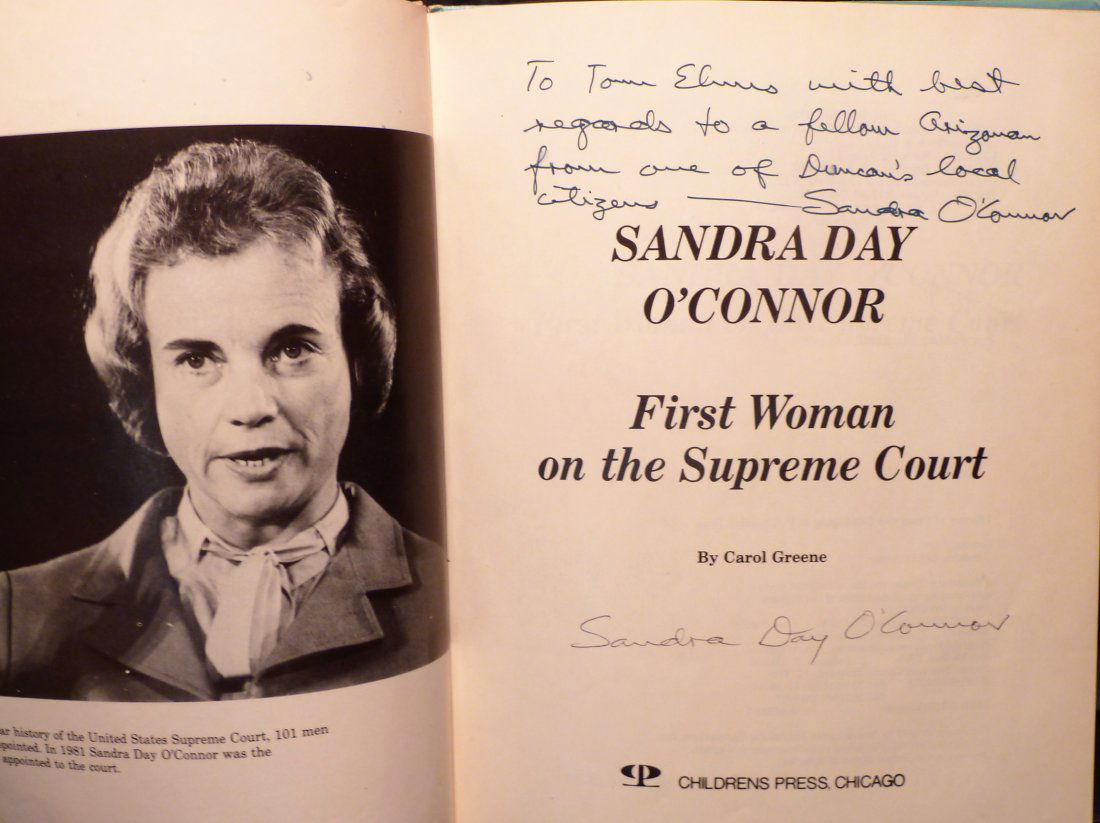 ar history of the United States Supreme Court, 101 men
pointed. In 1981 Sandra Day O'Connor was the
appointed to the court.
To Tom Elms with best
regards to a fellow Arizonan
from one of Duncan's local
citizens — Sandra O'Connor
SANDRA DAY
O'CONNOR
First Woman
on the Supreme Court
By Carol Greene
Sandra Day O'Connor
CHILDRENS PRESS, CHICAGO